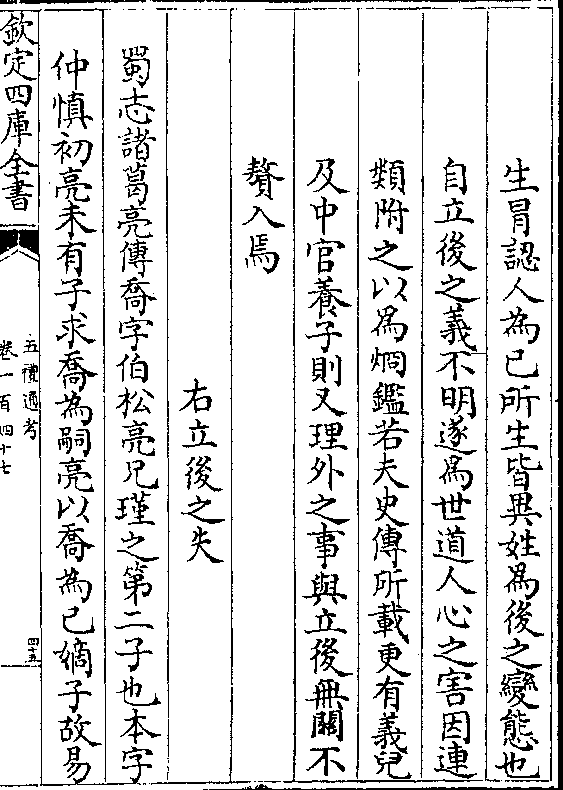 生冒認人為己所生皆異姓為後之變態也
自立後之義不明遂為世道人心之害因連
類附之以為烱鑑若夫史傳所載更有義兒
及中官養子則又理外之事與立後無關不
贅入焉
右立後之失
蜀志諸葛亮傳喬字伯松亮兄瑾之第二子也本字
仲慎初亮未有子求喬為嗣亮以喬為己嫡子故易
欽定四庫全書
五禮通考
卷一百四十七
四十五